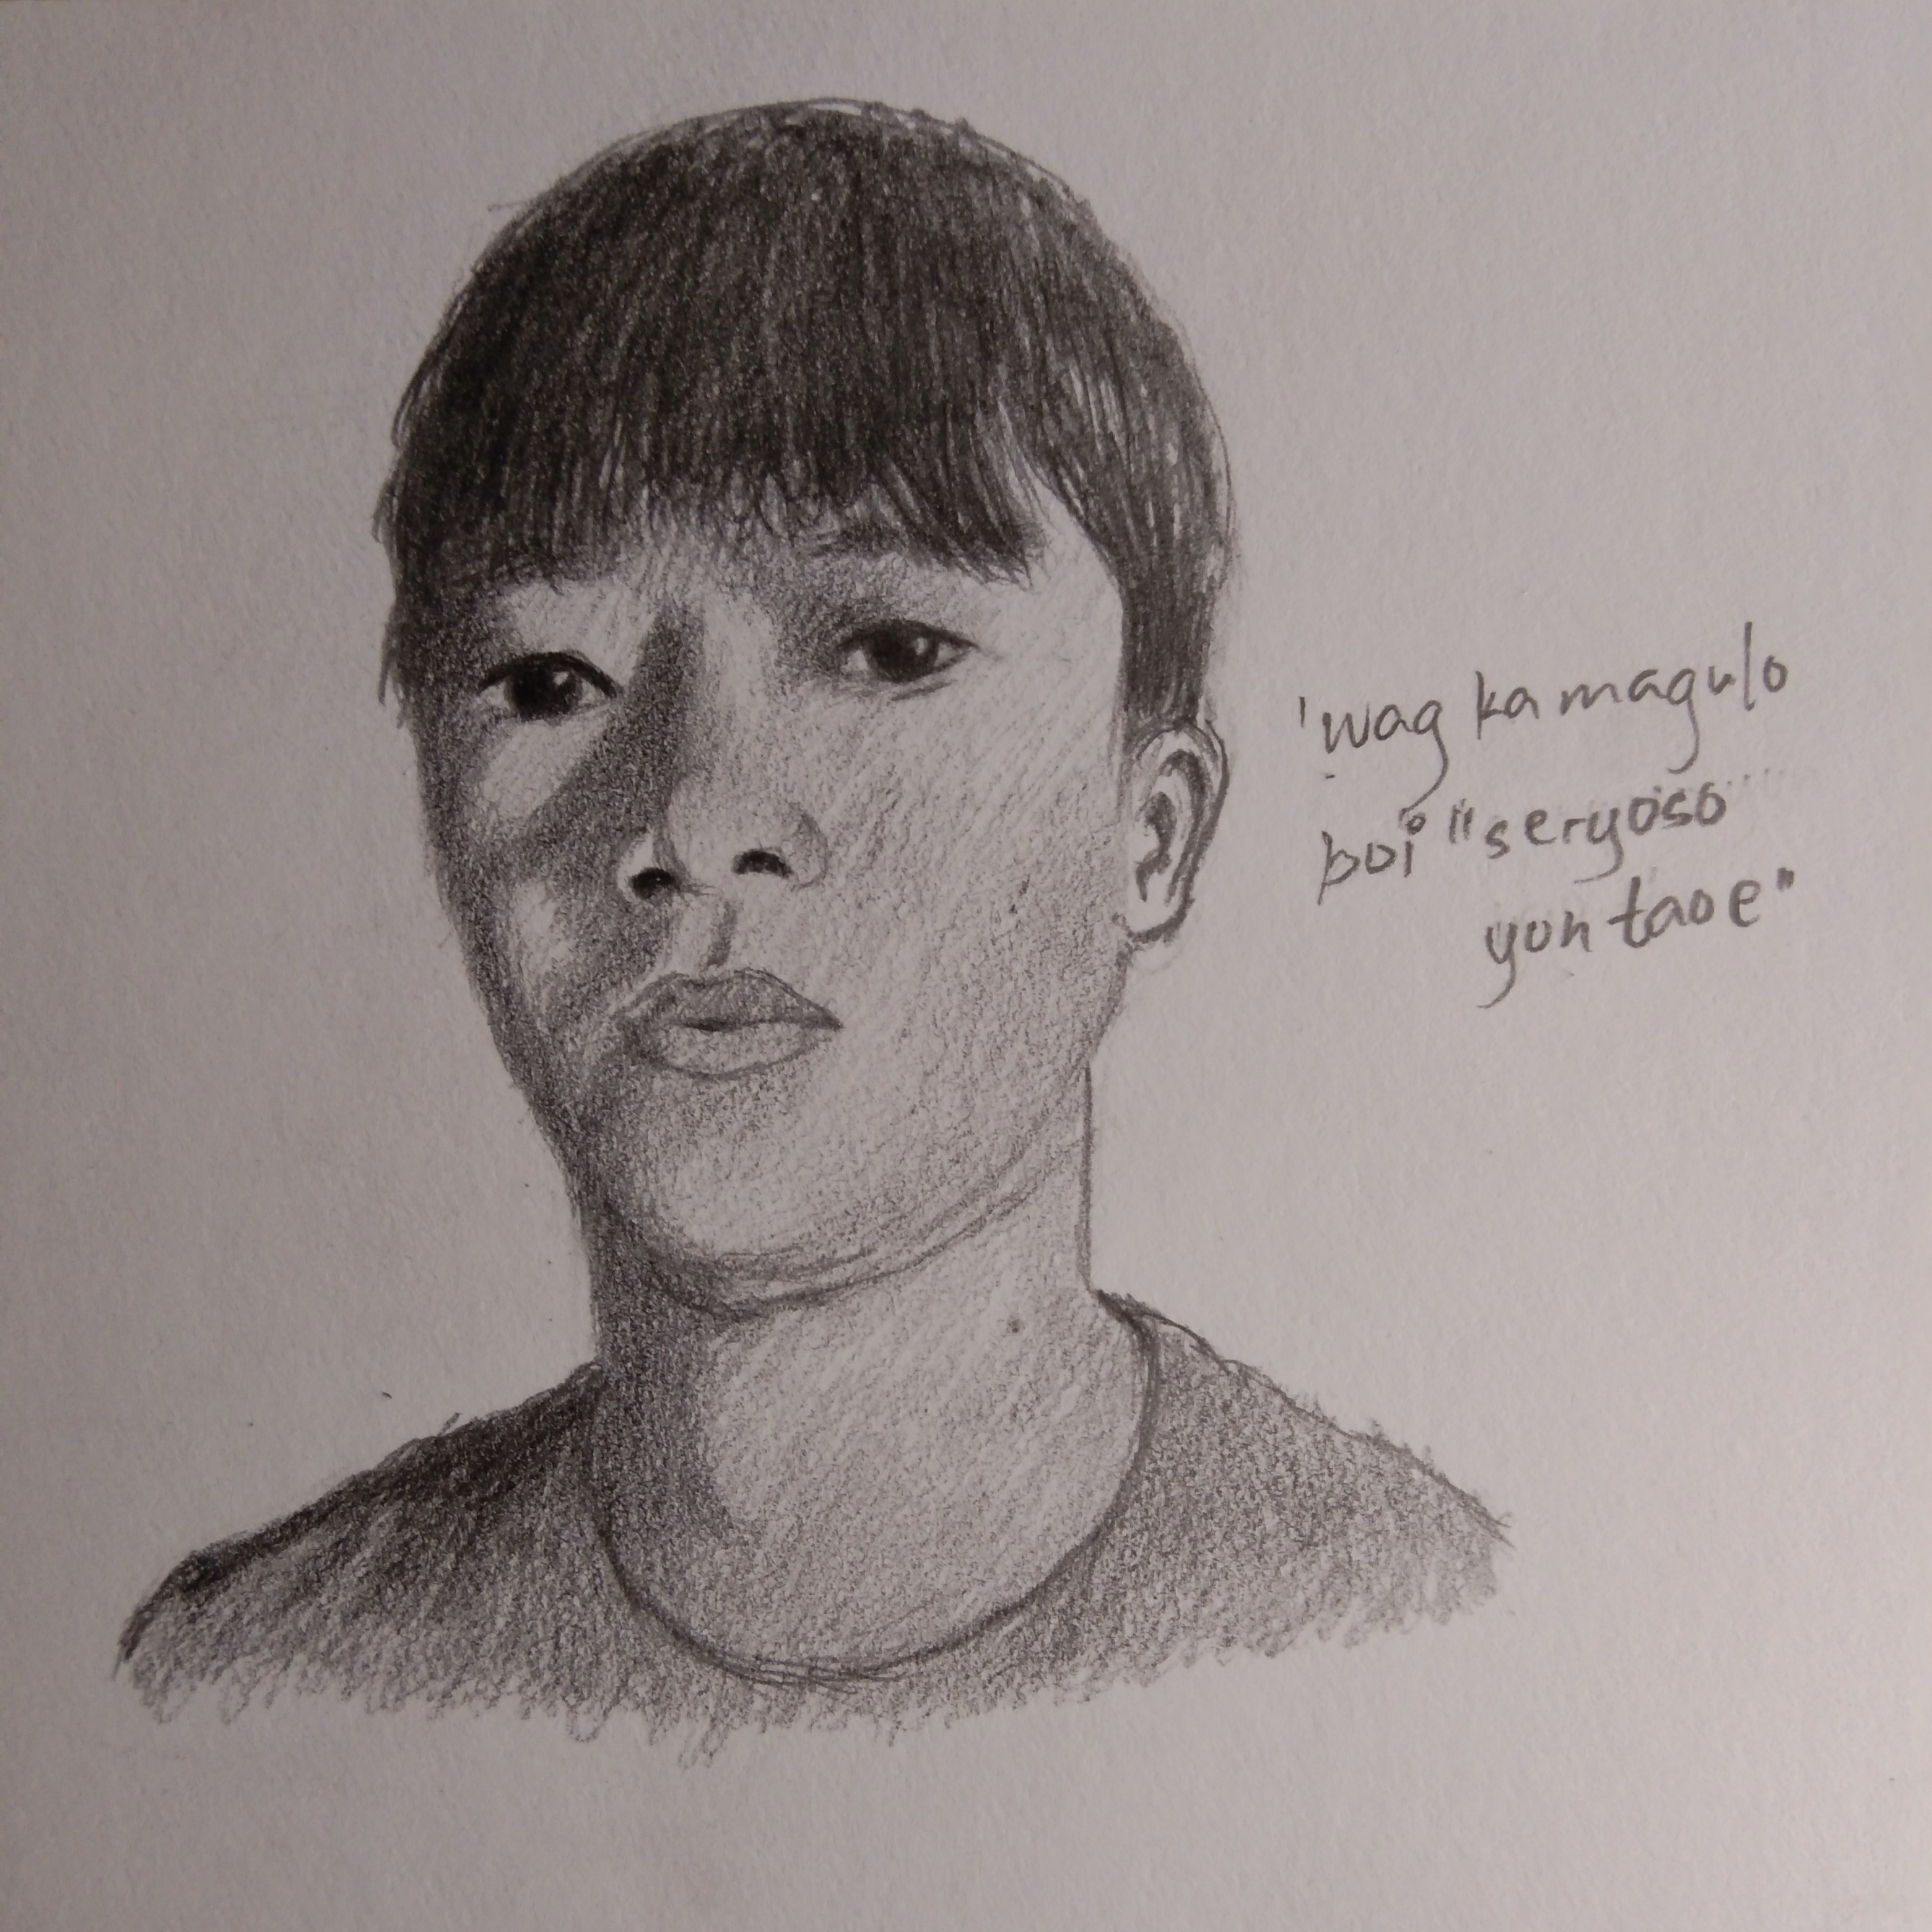 'wag ka magulo
boi "seryoso
yon taoe"